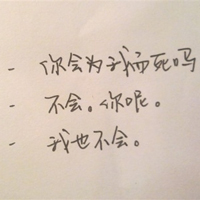 - 你会为我而死吗
- 不会。你呢。
- 我也不会。